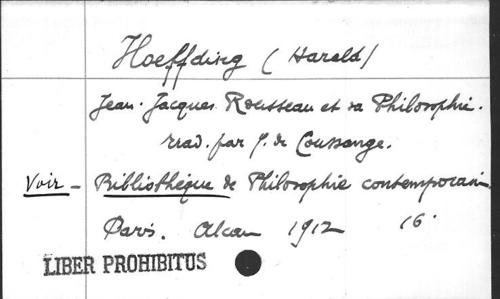 Hoeffding (Harald)
Jean-Jacques Rousseau et sa Philosophie.
trad. par J. de Coussange.
Voir - Bibliothèque de Philosophie contemporain
Paris. Alcan 1912 16°
LIBER PROHIBITUS